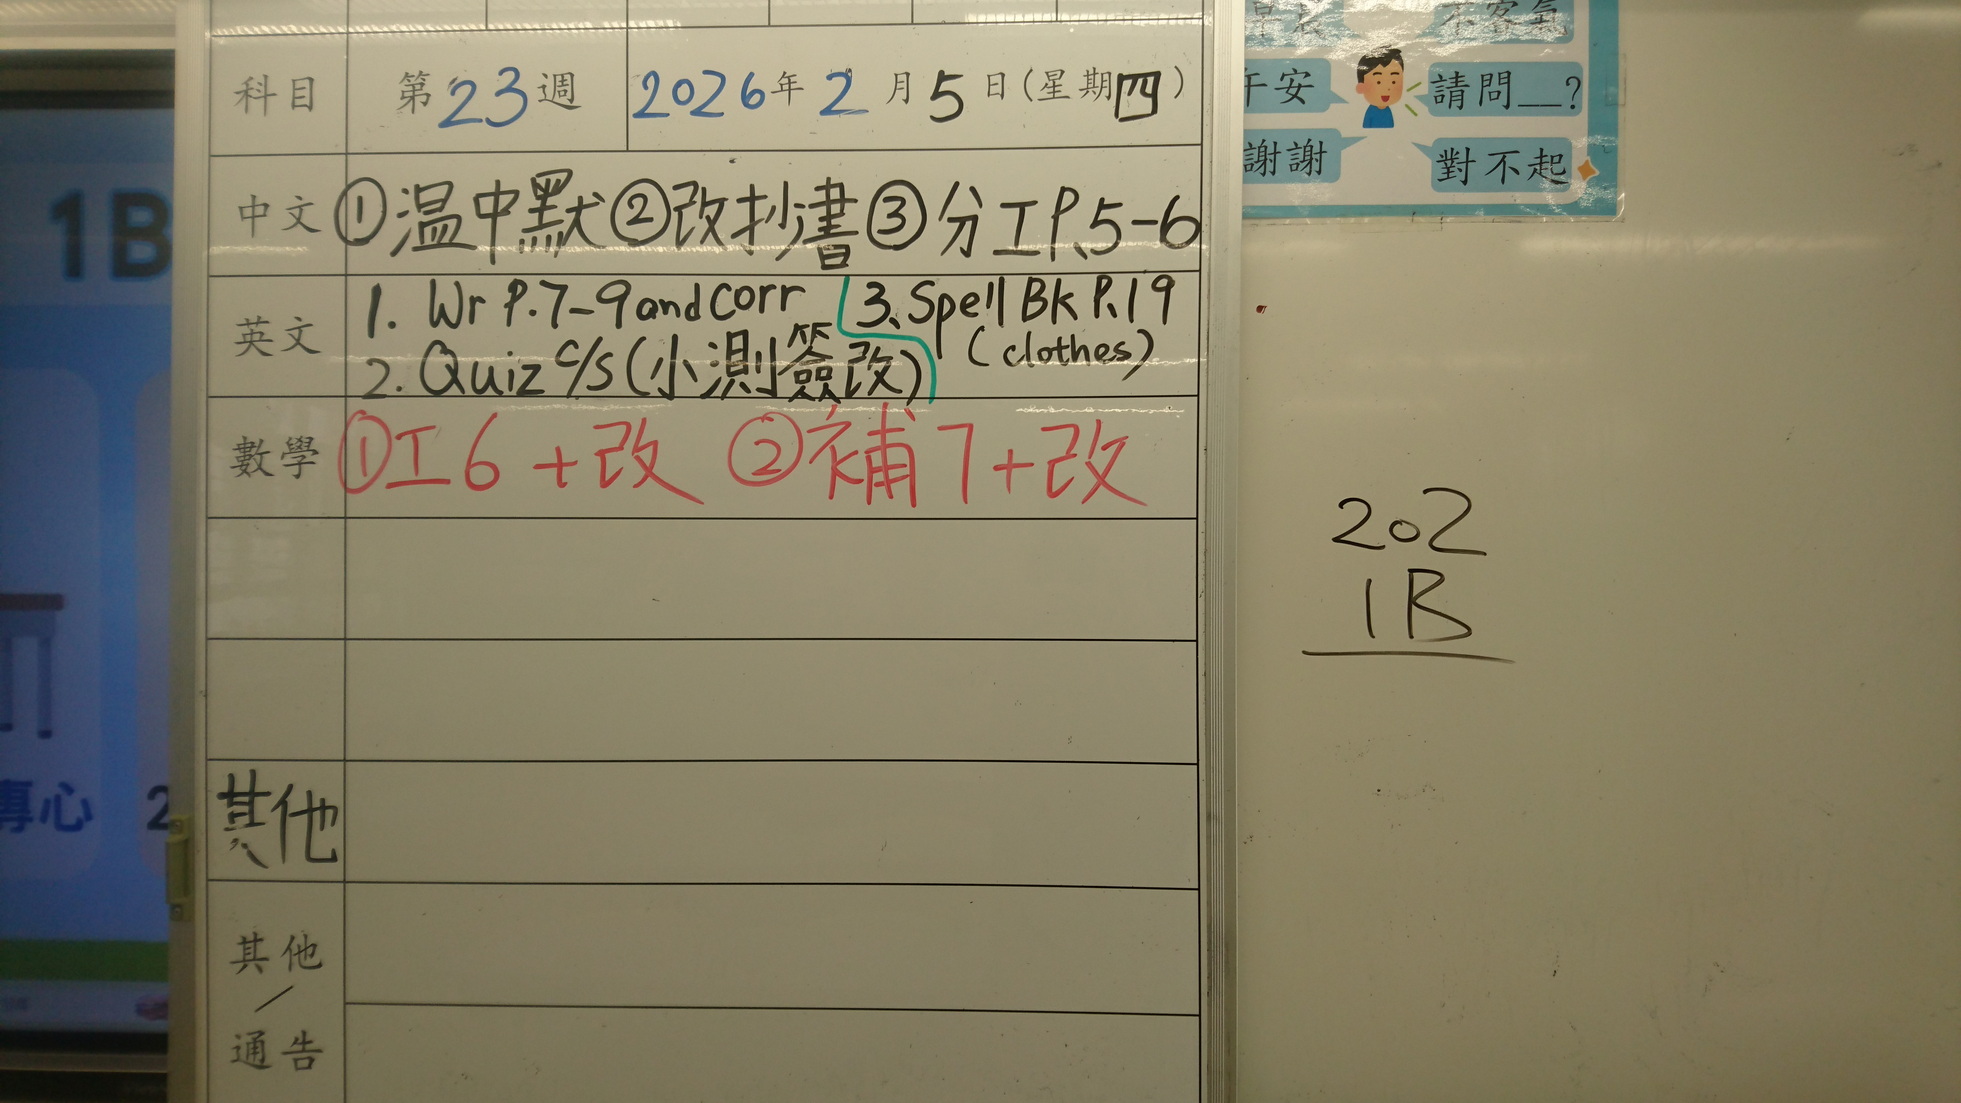 科目 第23週 2026年2月5日(星期四)
中文 ①温中默②改抄書③分工P.5-6
英文
1. Wr P.7-9 and corr
2. Quiz c/s(小測簽改)
3. Spell Bk P.19
(clothes)
數學 ①工6+改 ②補7+改
其他
其他
/
通告
1B
專心 2
不客氣
午安
請問__?
謝謝
對不起
202
1B